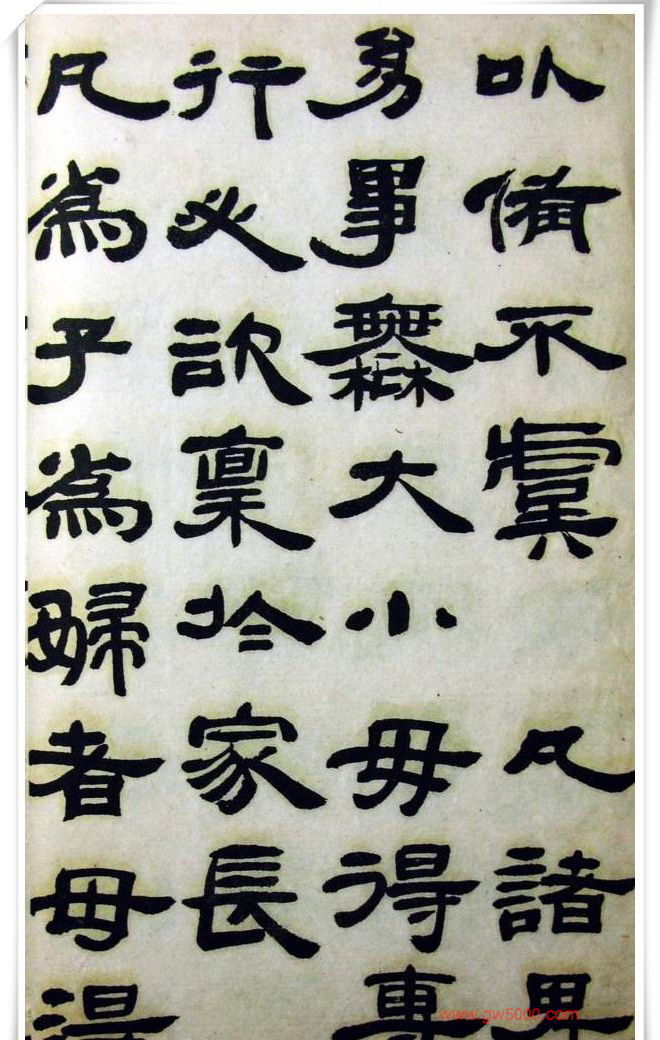 以備不虞凡諸卑
幼事無大小毋得專
行必咨稟於家長
凡爲子爲婦者毋得
www.gw5000.com